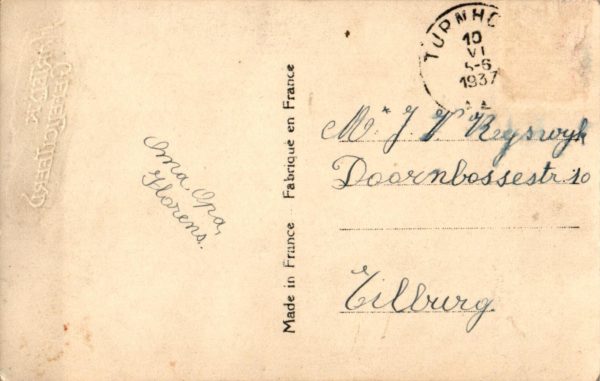 TURNHO
10
VI
5-6
1937
Oma, Opa,
Florens.
Made in France Fabriqué en France
Mr J. V. Reyswyk
Doornbossestr. 10
Tilburg.